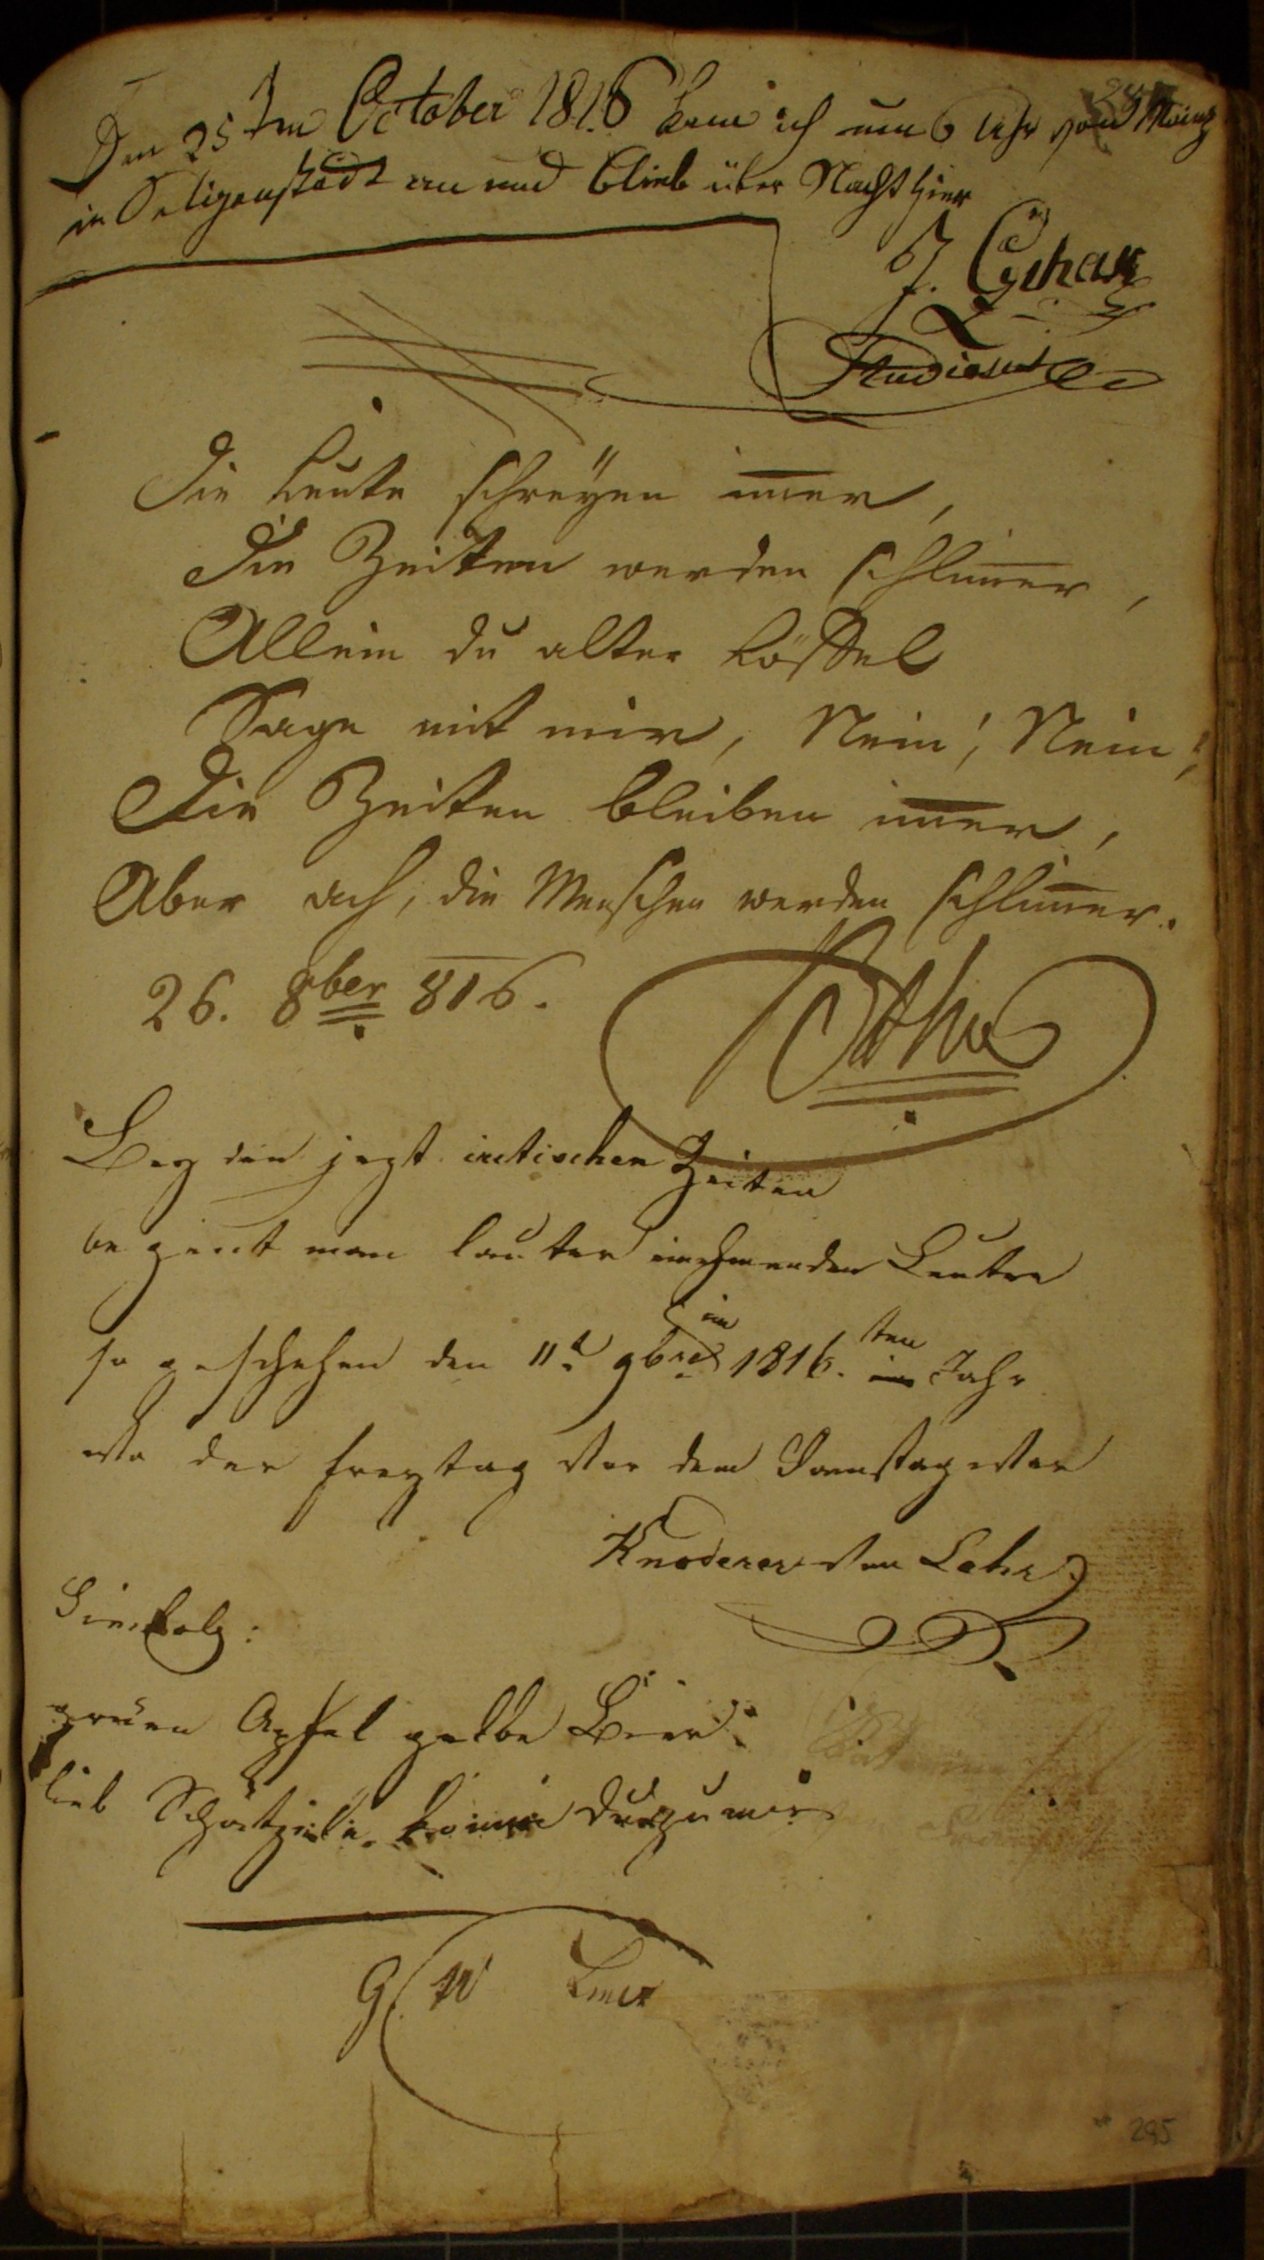 Den 25ten October 1816 kam ich um 6 Uhr von Mainz
in Seligenstadt an und blieb über Nacht hier
J.
Studiosus
Die Leute schreÿen im̅er,
Die Zeiten werden schlim̅er,
Allein du alter Löffel
Sage mit mir, Nein!, Nein!,
Die Zeiten bleiben im̅er,
Aber ach, die Menschen werden schlim̅er.
26. 8ber 816.
Bey den jezt Zeiten
man lauter Leute
so geschehen den 11t 9bre im 1816. ten Jahr
wo der Freytag vor dem Samstag war
Knoderer von Lahr
Simbolg:
gruen Apfel gelbe Bier
lieb Schätzle kom̅ Du zu mir
G W
295